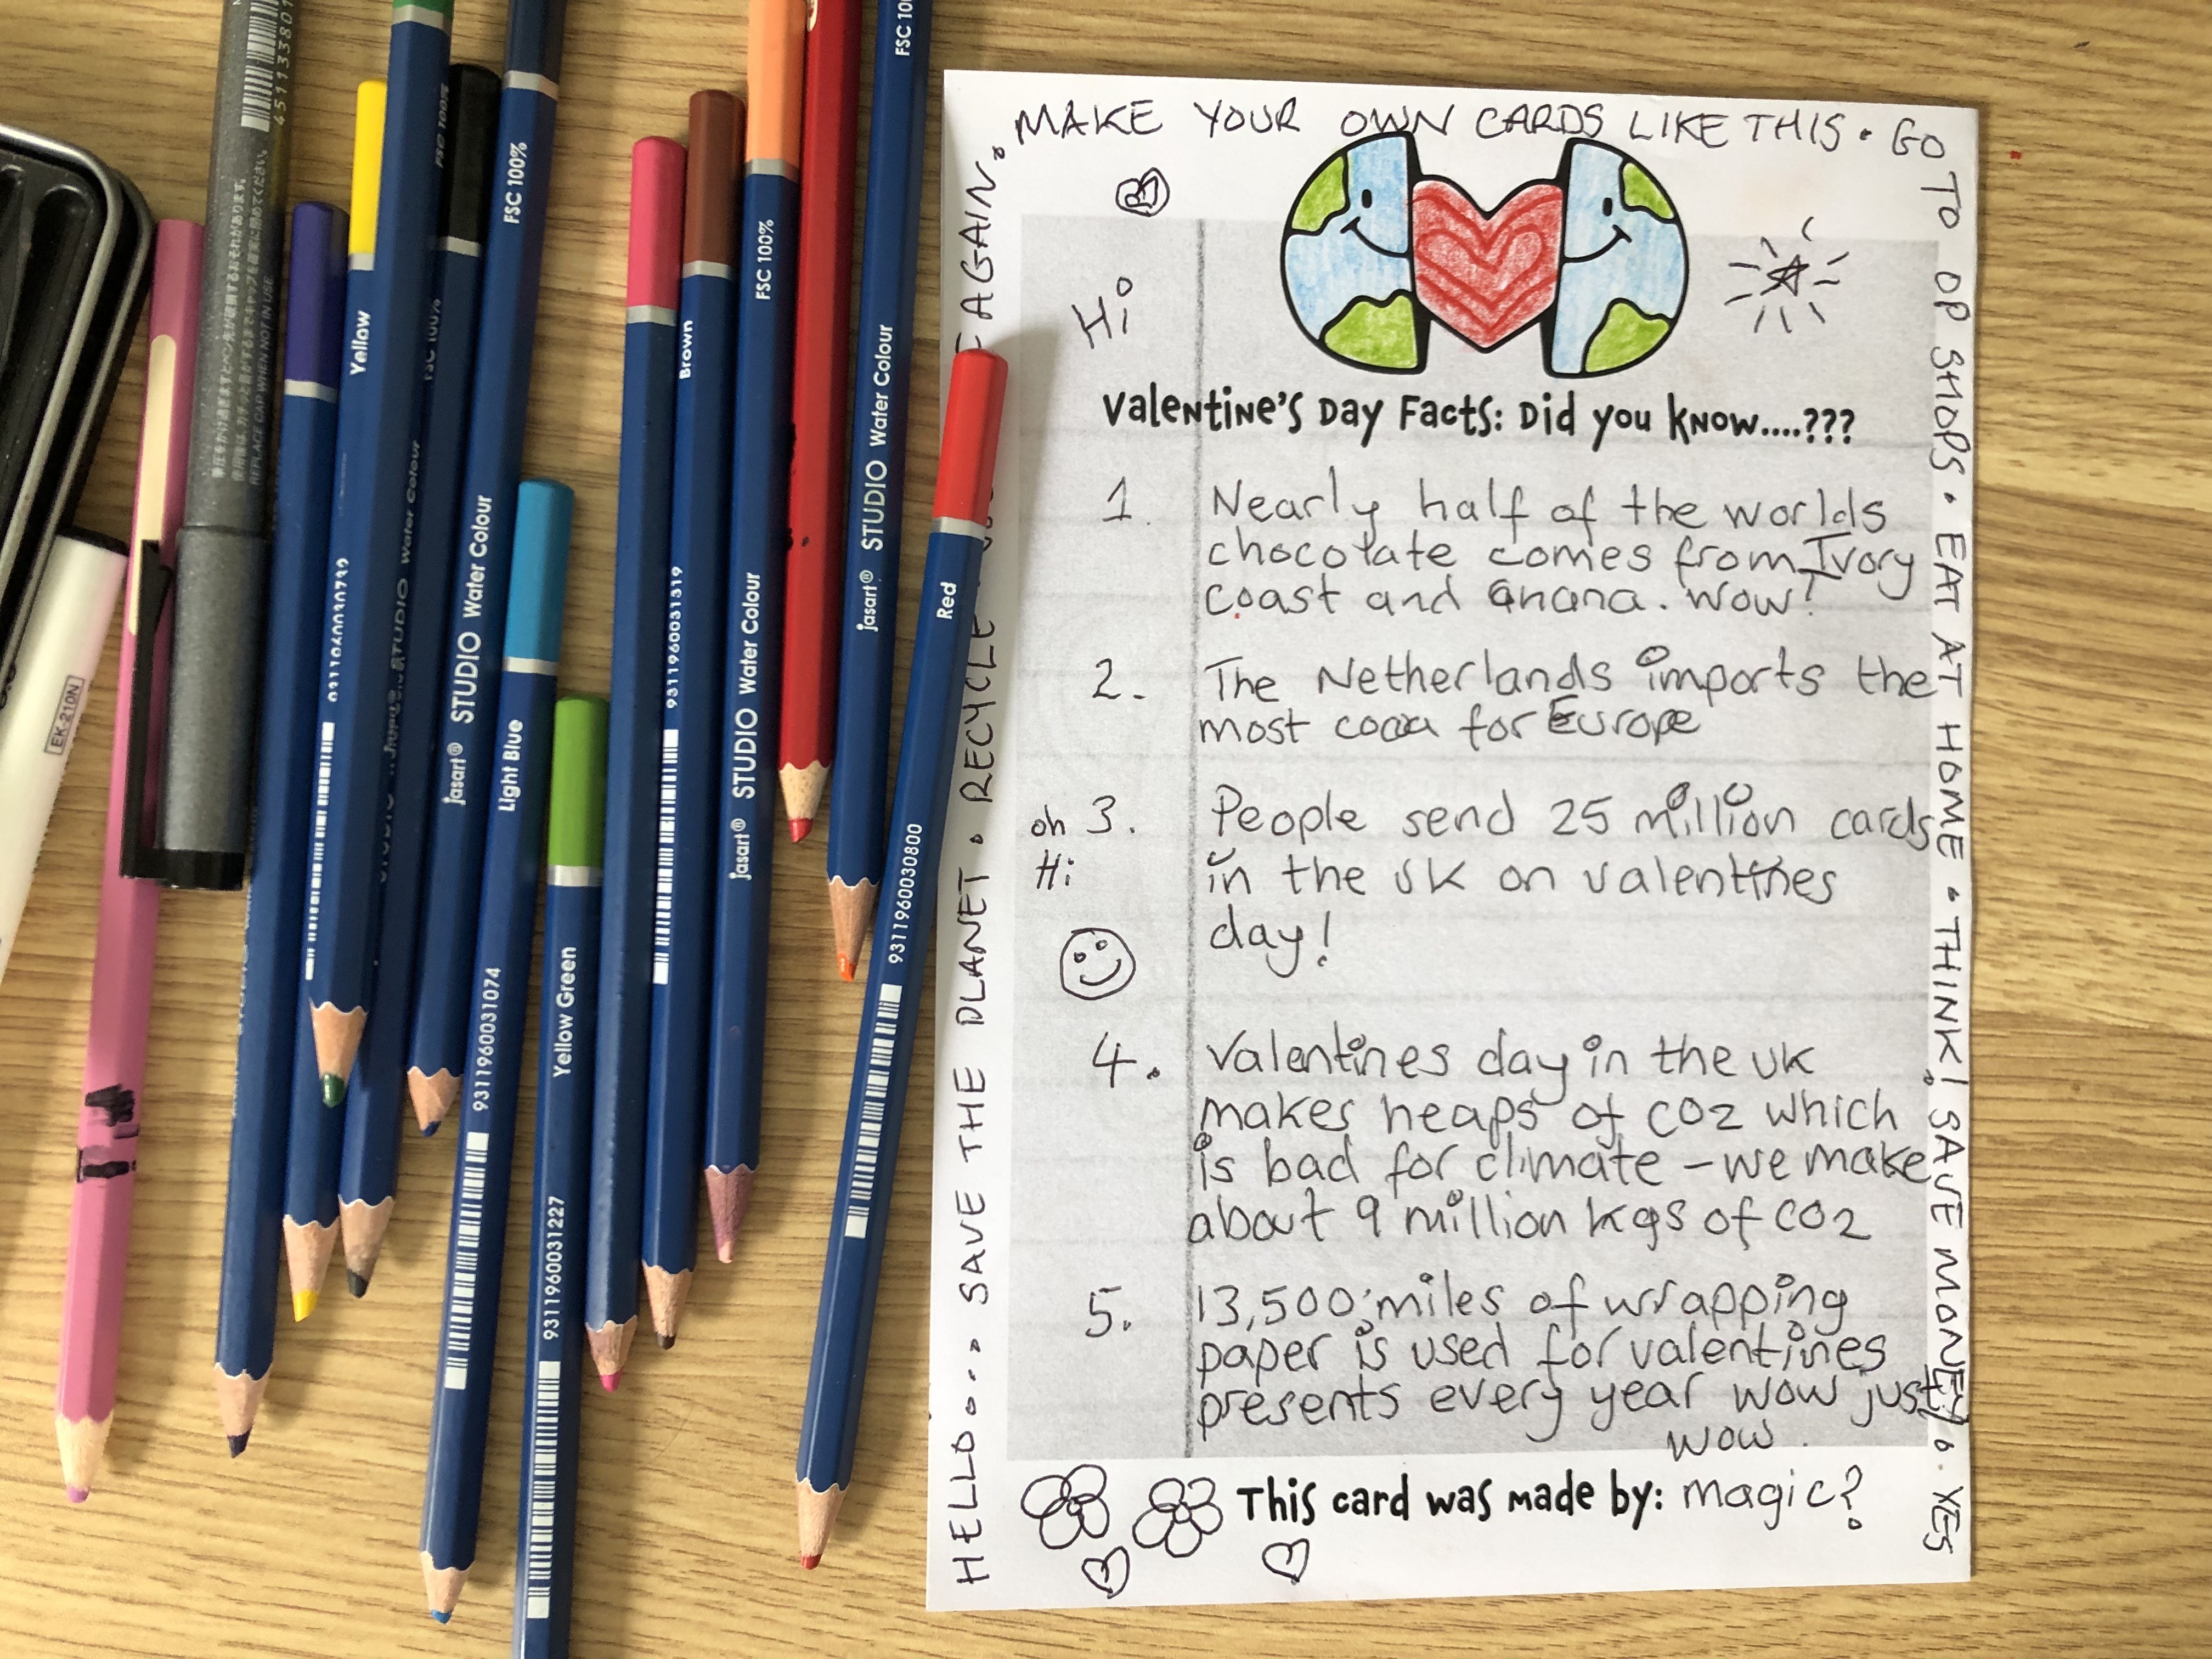 MAKE YOUR OWN CARDS LIKE THIS. GO
TO OP SHOPS. EAT AT HOME. THINK! SAVE MONEY. YES
HELLO.... SAVE THE PLANET. RECYCLE
AGAIN.
Hi
Valentine's Day Facts: Did you know....???
1. Nearly half of the worlds
chocolate comes from Ivory
coast and Ghana. Wow!
2. The Netherlands imports the
most cocoa for Europe
oh 3. People send 25 million cards
Hi in the UK on valentines
day!
4. Valentines day in the UK
makes heaps of CO2 which
is bad for climate - we make
about 9 million kgs of CO2
5. 13,500 miles of wrapping
paper is used for valentines
presents every year wow just
wow.
This card was made by: magic?
Yellow
FSC 100%
FSC 100%
FSC 100%
FSC 100%
FSC 100%
Brown
Red
Light Blue
Yellow Green
jasart® STUDIO Water Colour
jasart® STUDIO Water Colour
jasart® STUDIO Water Colour
STUDIO Water Colour
9311960031074
9311960031227
9311960031319
9311960030800
EK-210N
REPLACE CAP WHEN NOT IN USE